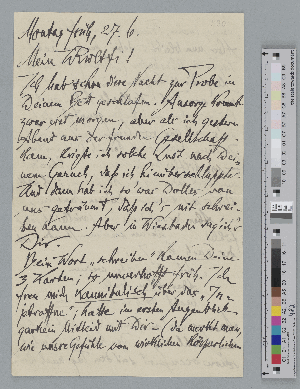 Montag früh, 27. 6.
Mein
Ich hab schon diese Nacht zur Probe in
Deinem Bett geschlafen.
zwar erst morgen, aber als ich gestern
Abend aus der fremden Gesellschaft
kam, kriegte ich solche Lust nach Dei-
nem Geruch, daß ich hinüberschlüpfte.
Und dann hab ich so was Dolles von
uns geträumt, daß ich's nit schrei-
ben kann. Aber in Wiesbaden sag ich's
Dir.
Beim Wort „schreiben" kamen Deine
3 Karten; so unverhofft früh. Ich
freu mich kannibalisch über das „In-
; hatte im ersten Augenblick
garkein Mitleid mit Dir – (da merkt man,
wie unsre Gefühle vom wirklichen körperlichen